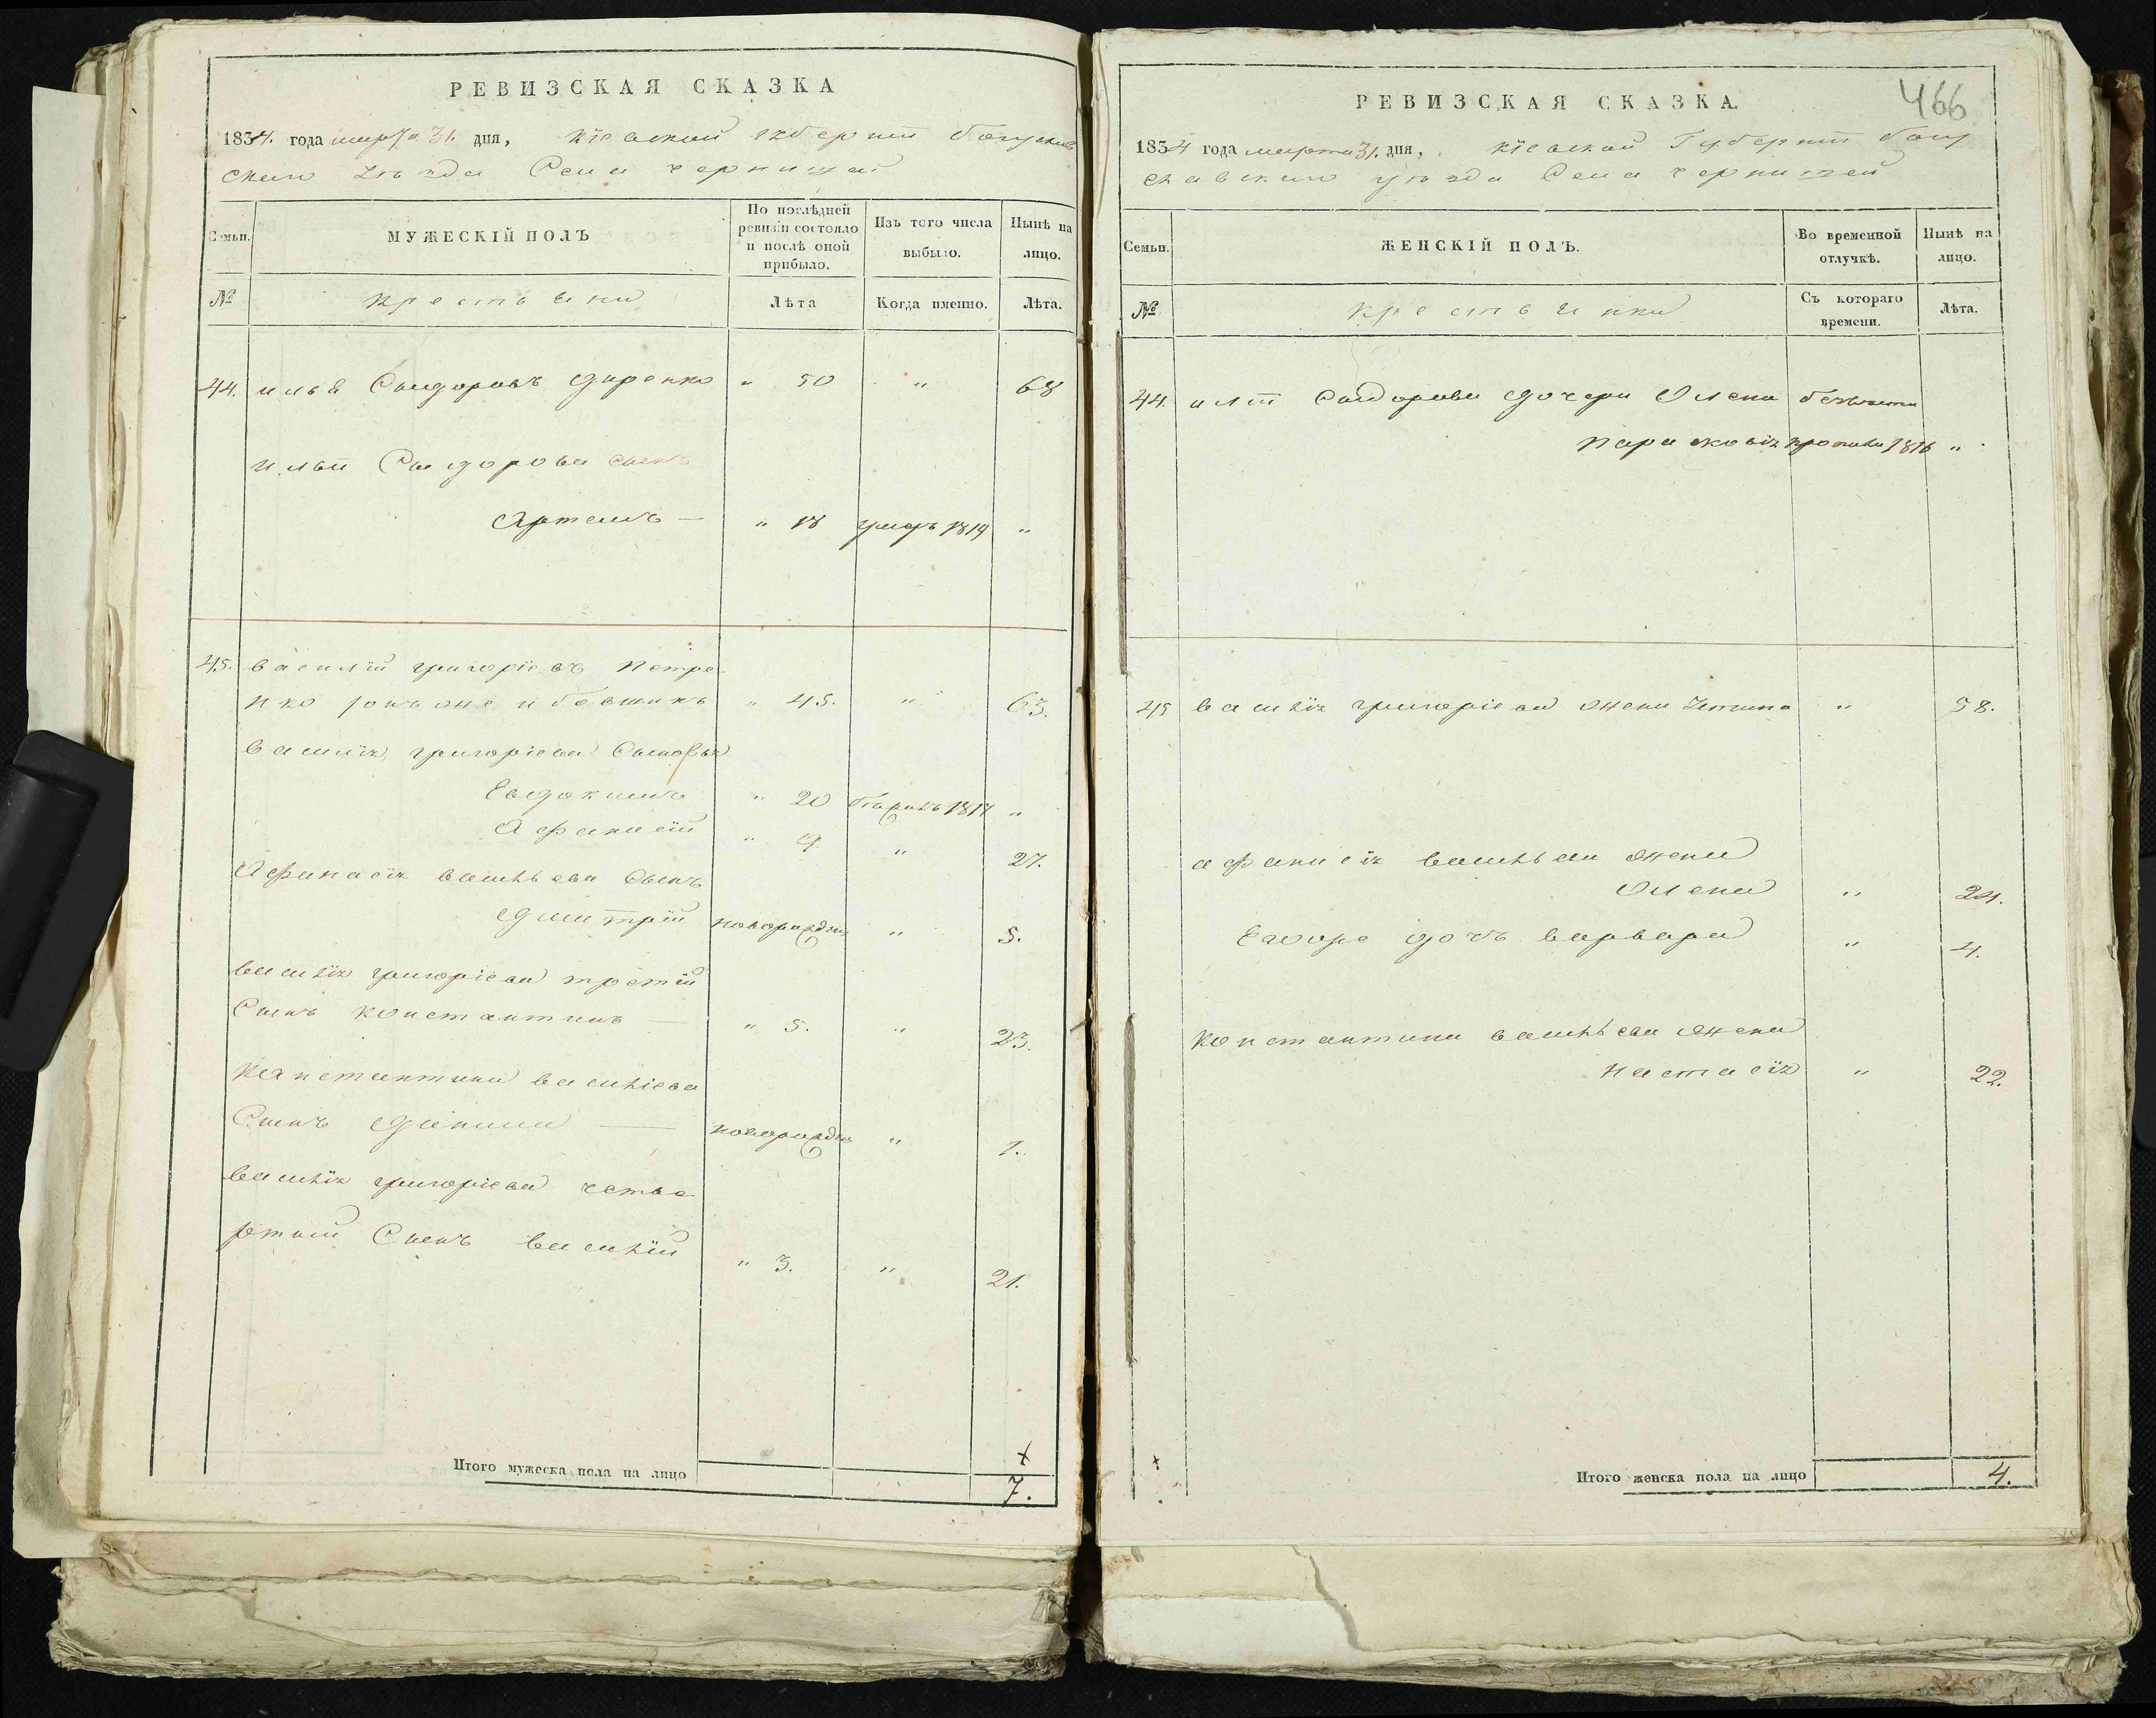 РЕВИЗСКАЯ СКАЗКА
1834. года марта 31. дня, Кіевской губерніи Богуслав
скаго уѣзда Села Чернишей
Семьи. МУЖЕСКІЙ ПОЛЪ По послѣдней ревизіи состояло и послѣ оной прибыло. Изъ того числа выбыло. Нынѣ на лицо.
№ Крестьяни Лѣта Когда именно. Лѣта.
44. илья Сыдоровъ " 50 " 68
ильи Сыдорова сынъ
Артемъ — " 18 умеръ 1819 "
45. василій григоріевъ Петре
нко " 45. " 63.
василіѧ григоріева Сыновья
Евдокимъ " 20 1817 "
Афанасій " 9 " 27.
Афанасіѧ васильева Сынъ
Дмитрій новорожден " 5.
василіѧ григоріева третій
Сынъ константинъ — " 5. " 23.
Константина василіева
Сынъ — новорожден " 1.
василіѧ григоріева четве
ртый Сынъ василій " 3. " 21.
Итого мужеска пола на лицо 7.
466
РЕВИЗСКАЯ СКАЗКА.
1834 года марта 31. дня, Кіевской Губерніи Богу
славскаго уѣзда Села чернишей
Семьи. ЖЕНСКІЙ ПОЛЪ. Во временной отлучкѣ. Нынѣ на лицо.
№ Крестьянки Съ котораго времени. Лѣта.
44. Сыдорова дочери Олена безвѣсти
Парасковіѧ пропали 1816 "
45 василіѧ григоріева жена " 58.
афанасіѧ васильева жена
Олена " 24.
Егоже дочь варвара " 4.
константина васильева жена
настасіѧ " 22.
Итого женска пола на лицо 4.